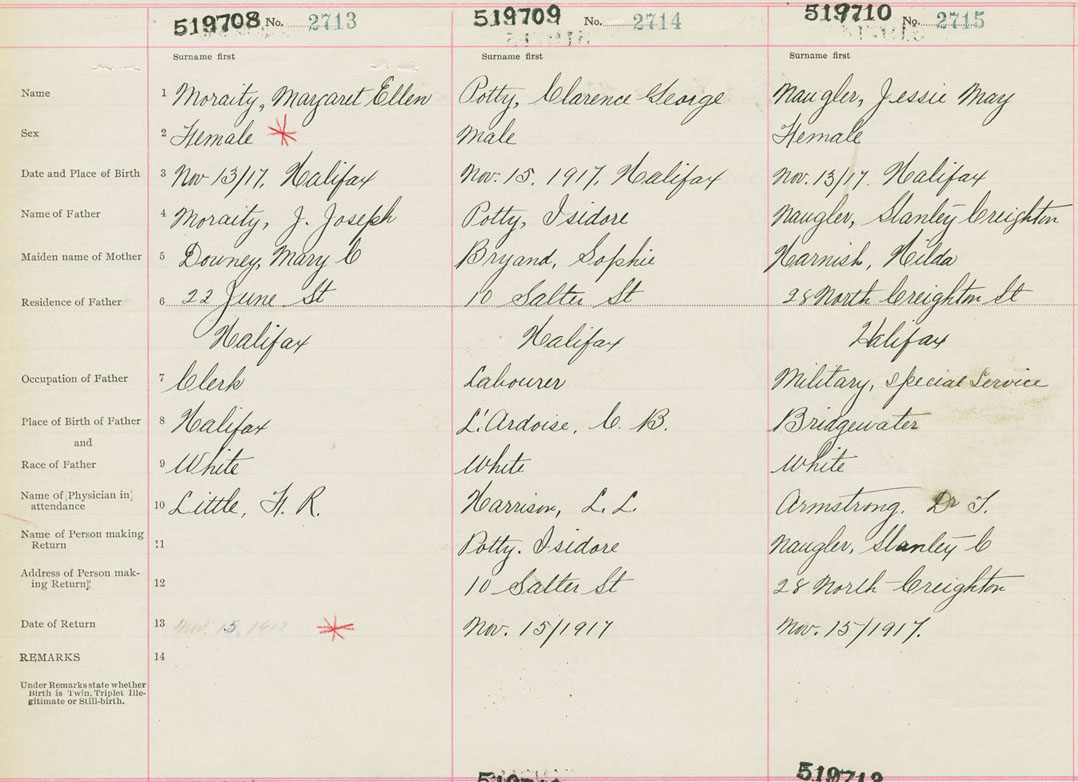 519708 No. 2713 519709 No. 2714 519710 No. 2715
Surname first Surname first Surname first
Name 1 Moraity, Margaret Ellen Potty, Clarence George Naugler, Jessie May
Sex 2 Female Male Female
Date and Place of Birth 3 Nov 13/17, Halifax Nov. 15. 1917, Halifax Nov. 13/17. Halifax
Name of Father 4 Moraity, J. Joseph Potty, Isidore Naugler, Stanley Creighton
Maiden name of Mother 5 Downey, Mary C Bryand, Sophie Harnish, Hilda
Residence of Father 6 22 June St 10 Salter St 28 North Creighton St
Halifax Halifax Halifax
Occupation of Father 7 Clerk Labourer Military, Special Service
Place of Birth of Father 8 Halifax L'Ardoise, C. B. Bridgewater
and
Race of Father 9 White White White
Name of Physician in
attendance 10 Little, F. R. Harrison, L. L. Armstrong. Dr T.
Name of Person making
Return 11 Potty. Isidore Naugler, Stanley C
Address of Person mak-
ing Return 12 10 Salter St 28 North Creighton
Date of Return 13 Nov. 15, 1917 Nov. 15/1917 Nov. 15/1917.
REMARKS 14
Under Remarks state whether
Birth is Twin, Triplet Ille-
gitimate or Still-birth.
519712